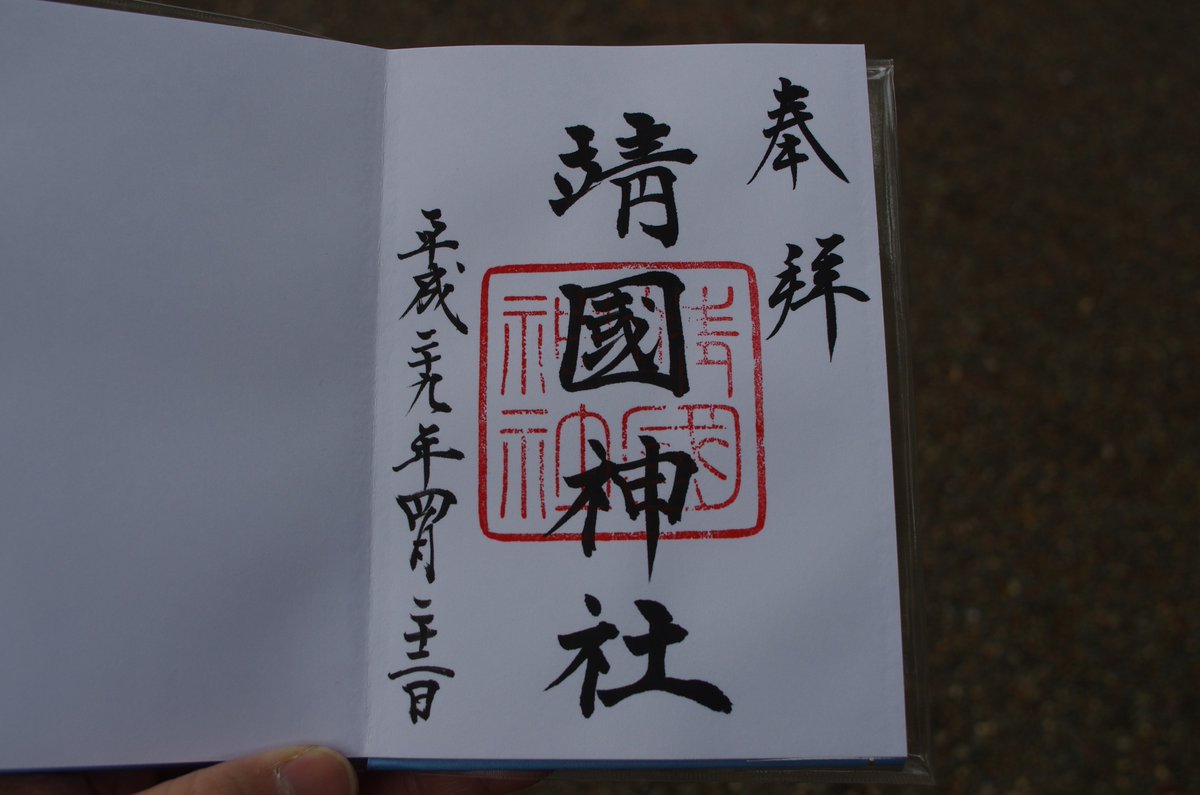 奉拝
靖國神社
平成二十九年四月二十二日
靖國
神社